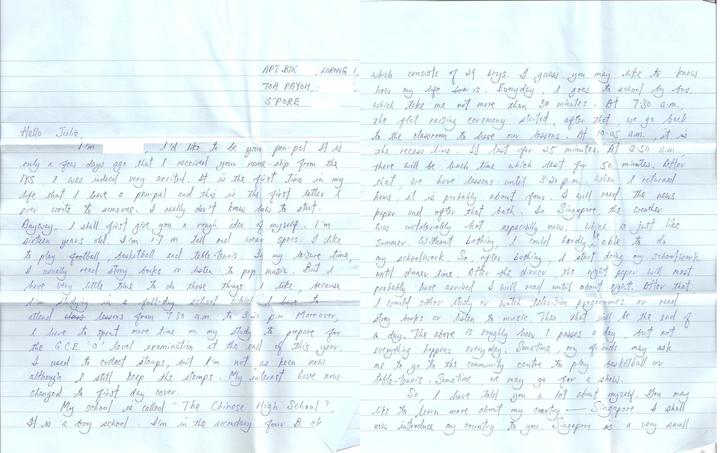 APT BLK , LORONG 1,
TOA PAYOH,
S'PORE
Hello Julie,
I'm I'd like to be your pen-pal. It is
only a few days ago that I received your name-slip from the
IYS. I was indeed very excited. It is the first time in my
life that I have a pen-pal and this is the first letter I
ever write to someone. I really don't know how to start.
Anyway, I shall first give you a rough idea of myself. I'm
sixteen years old. I'm 1.7 m tall and wear specs. I like
to play football, basketball and table-tennis. In my leisure time,
I usually read story books or listen to pop music. But I
have very little time to do those things I like, because
I'm studying in a full-day school which I have to
attend lessons from 7.30 a.m. to 3.20 p.m. Moreover,
I have to spent more time on my study to prepare for
the G.C.E. 'O' level examination at the end of this year.
I used to collect stamps, but I'm not as keen now
although I still keep the stamps. My interest have now
changed to first day cover.
My school is called "The Chinese High School".
It is a boy school. I'm in the secondary four B
which consists of 29 boys. I guess you may like to know
how my life is. Everyday, I goes to school by bus
which take me not more than 30 minutes. At 7:30 a.m.
the flag raising ceremony started, after that, we go back
to the classroom to have our lessons. At 10.05 a.m., it is
the recess time. It last for 25 minutes. At 12.50 a.m.
there will be lunch time which last for 50 minutes. After
that we have lessons until 3.20 p.m. When I returned
home, it is probably about four. I will read the news
paper and after that bath. In Singapore the weather
was unbearably hot especially now, which is just like
summer. Without bathing, I could hardly able to do
my schoolwork. So, after bathing, I start doing my schoolwork
until dinner time. After the dinner the night paper will most
probably have arrived. I will read until about eight. After that
I would either study or watch television programmes or read
story books or listen to music. Then that will be the end of
a day. The above is roughly how I passes a day, but not
everything happens everyday. Sometime, my friends may ask
me to go to the community centre to play basketball or
table-tennis. Sometime, we may go for a show.
So, I have told you a lot about myself. You may
like to learn more about my country — Singapore. I shall
now introduce my country to you. Singapore is a very small